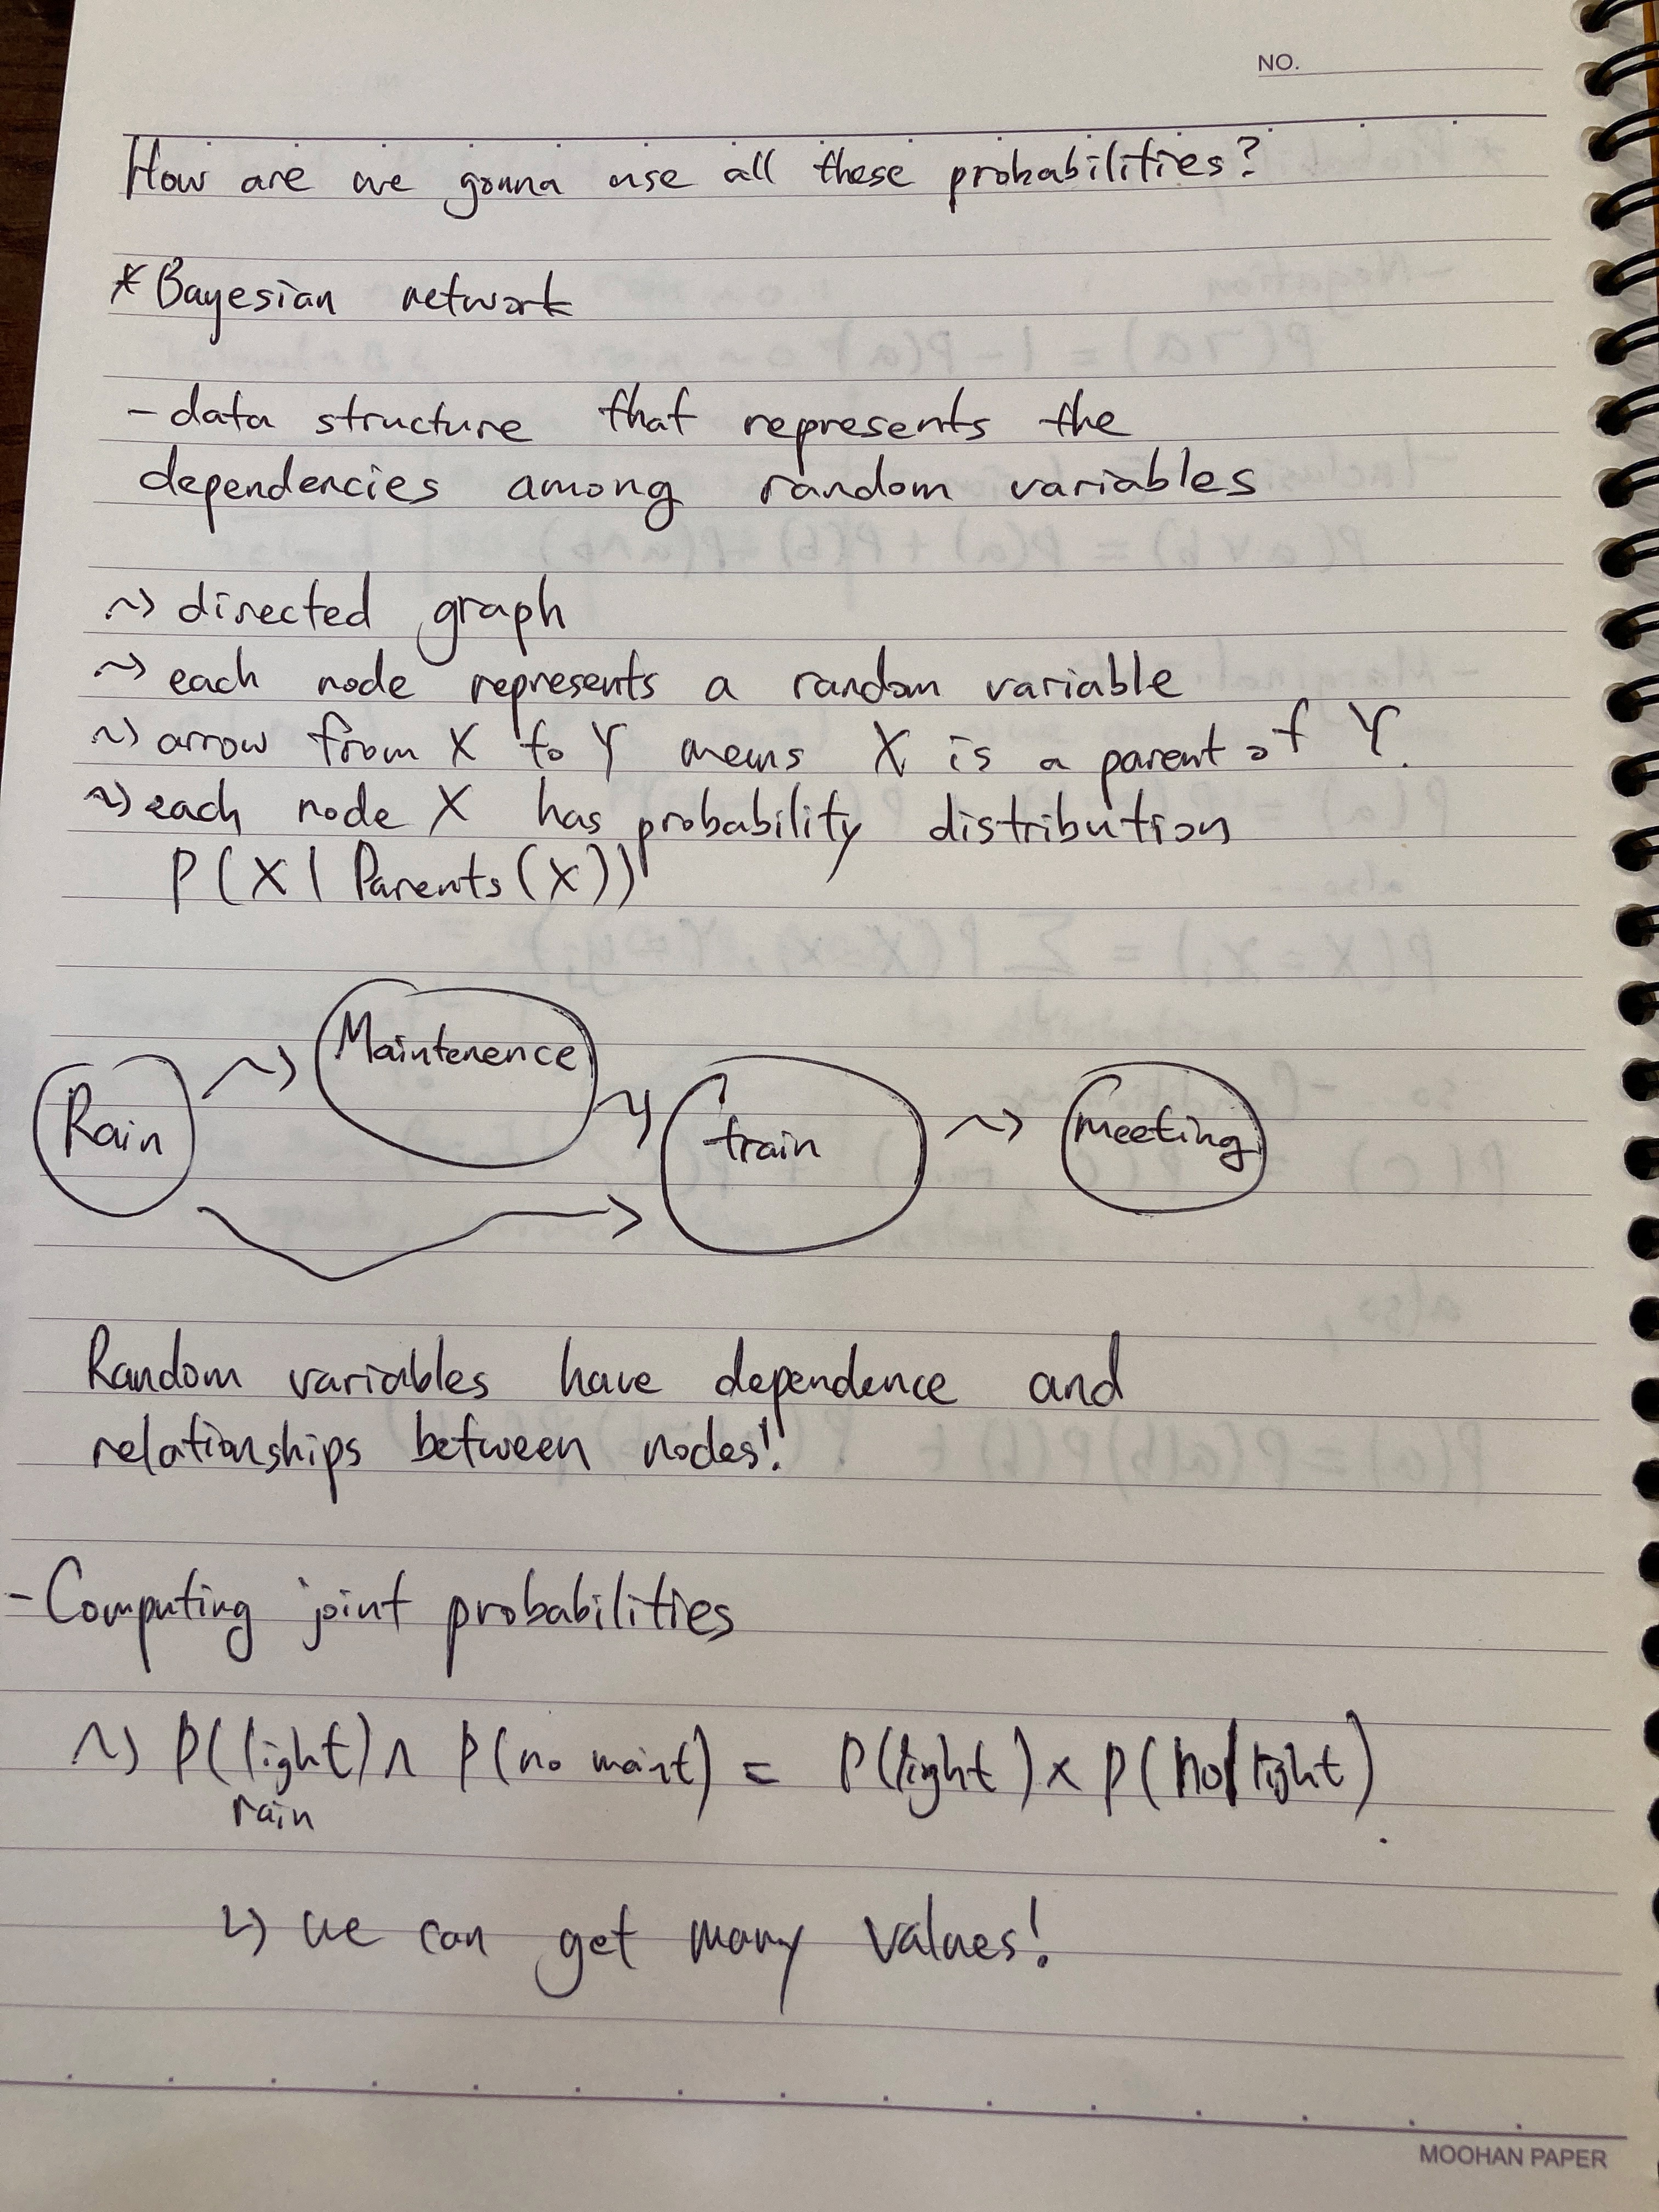 NO.
How are we gonna use all these probabilities?
* Bayesian network
- data structure that represents the
dependencies among random variables
~> directed graph
~> each node represents a random variable
~> arrow from X to Y means X is a parent of Y.
~> each node X has probability distribution
P(X | Parents(X))
Maintenence
Rain
train
meeting
Random variables have dependence and
relationships between nodes!!
- Computing joint probabilities
~> P(light) ∧ P(no maint) = P(light) × P(no | light).
rain
↳ we can get many values!
MOOHAN PAPER